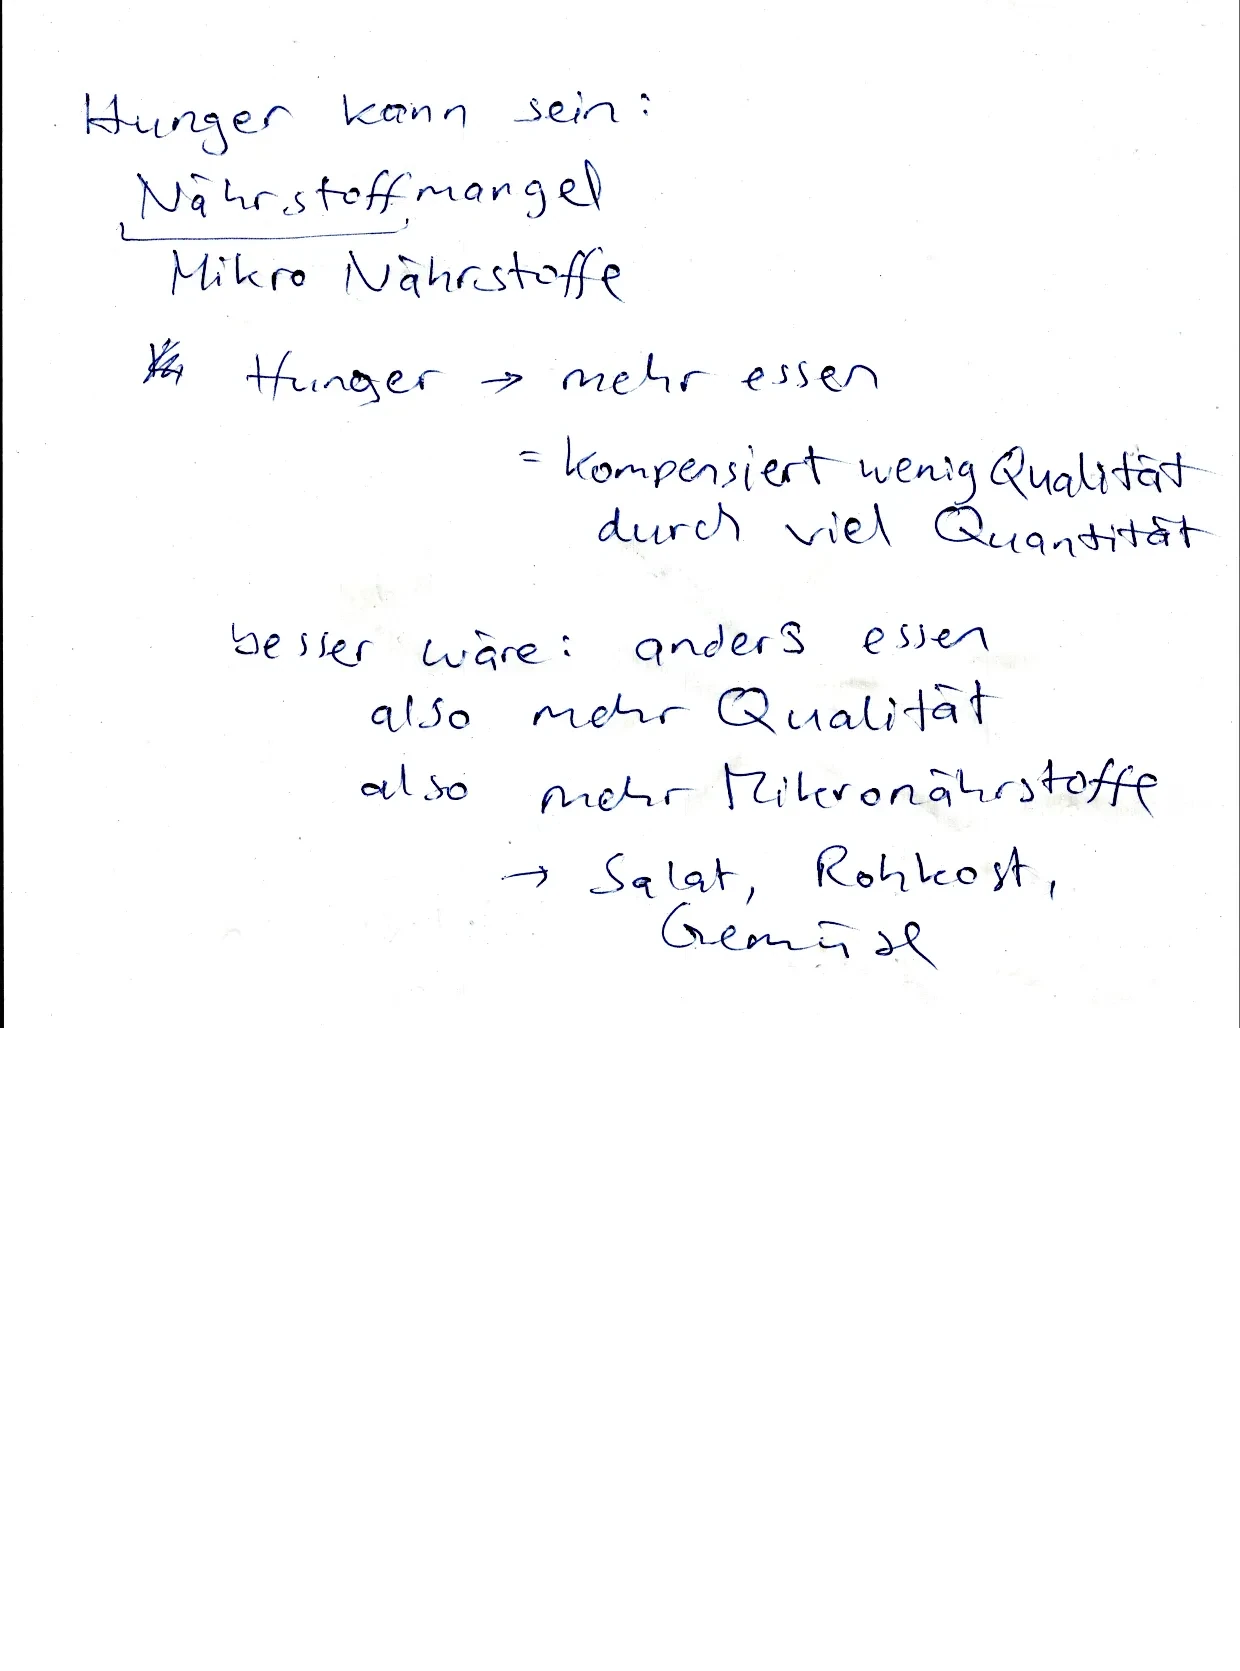 Hunger kann sein:
Nährstoffmangel
Mikro Nährstoffe
Hunger → mehr essen
= kompensiert wenig Qualität
durch viel Quantität
besser wäre: anders essen
also mehr Qualität
also mehr Mikronährstoffe
→ Salat, Rohkost,
Gemüse